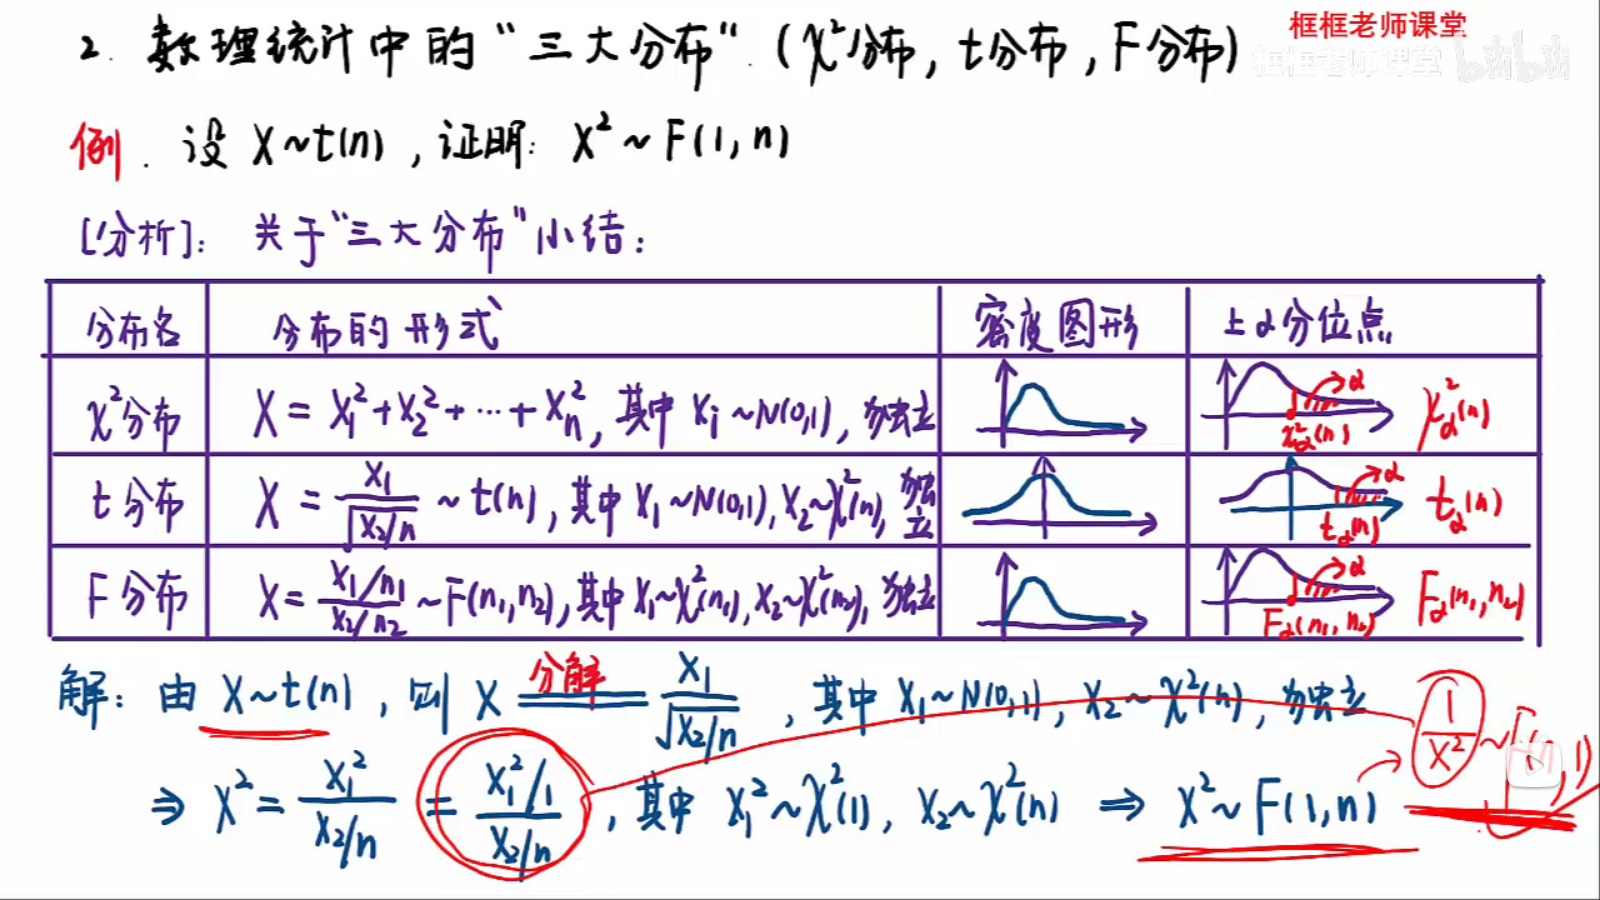 框框老师课堂
框框老师课堂 bilibili
2. 数理统计中的“三大分布”. (χ²分布, t分布, F分布)
例. 设 X~t(n), 证明: X²~F(1, n)
[分析]: 关于“三大分布”小结:
分布名 分布的形式 密度图形 上α分位点
χ²分布 X = X₁²+X₂²+…+Xₙ², 其中 Xᵢ~N(0,1), 独立 α χ²α(n) χ²α(n)
t分布 X = X₁/√(X₂/n) ~ t(n), 其中 X₁~N(0,1), X₂~χ²(n), 独立 α tα(n) tα(n)
F分布 X = (X₁/n₁)/(X₂/n₂) ~F(n₁,n₂), 其中 X₁~χ²(n₁), X₂~χ²(n₂), 独立 α Fα(n₁,n₂) Fα(n₁,n₂)
解: 由 X~t(n), 则 X =分解= X₁/√(X₂/n), 其中 X₁~N(0,1), X₂~χ²(n), 独立
⇒ X² = X₁²/(X₂/n) = (X₁²/1)/(X₂/n), 其中 X₁²~χ²(1), X₂~χ²(n) ⇒ X²~F(1,n) → 1/X² ~